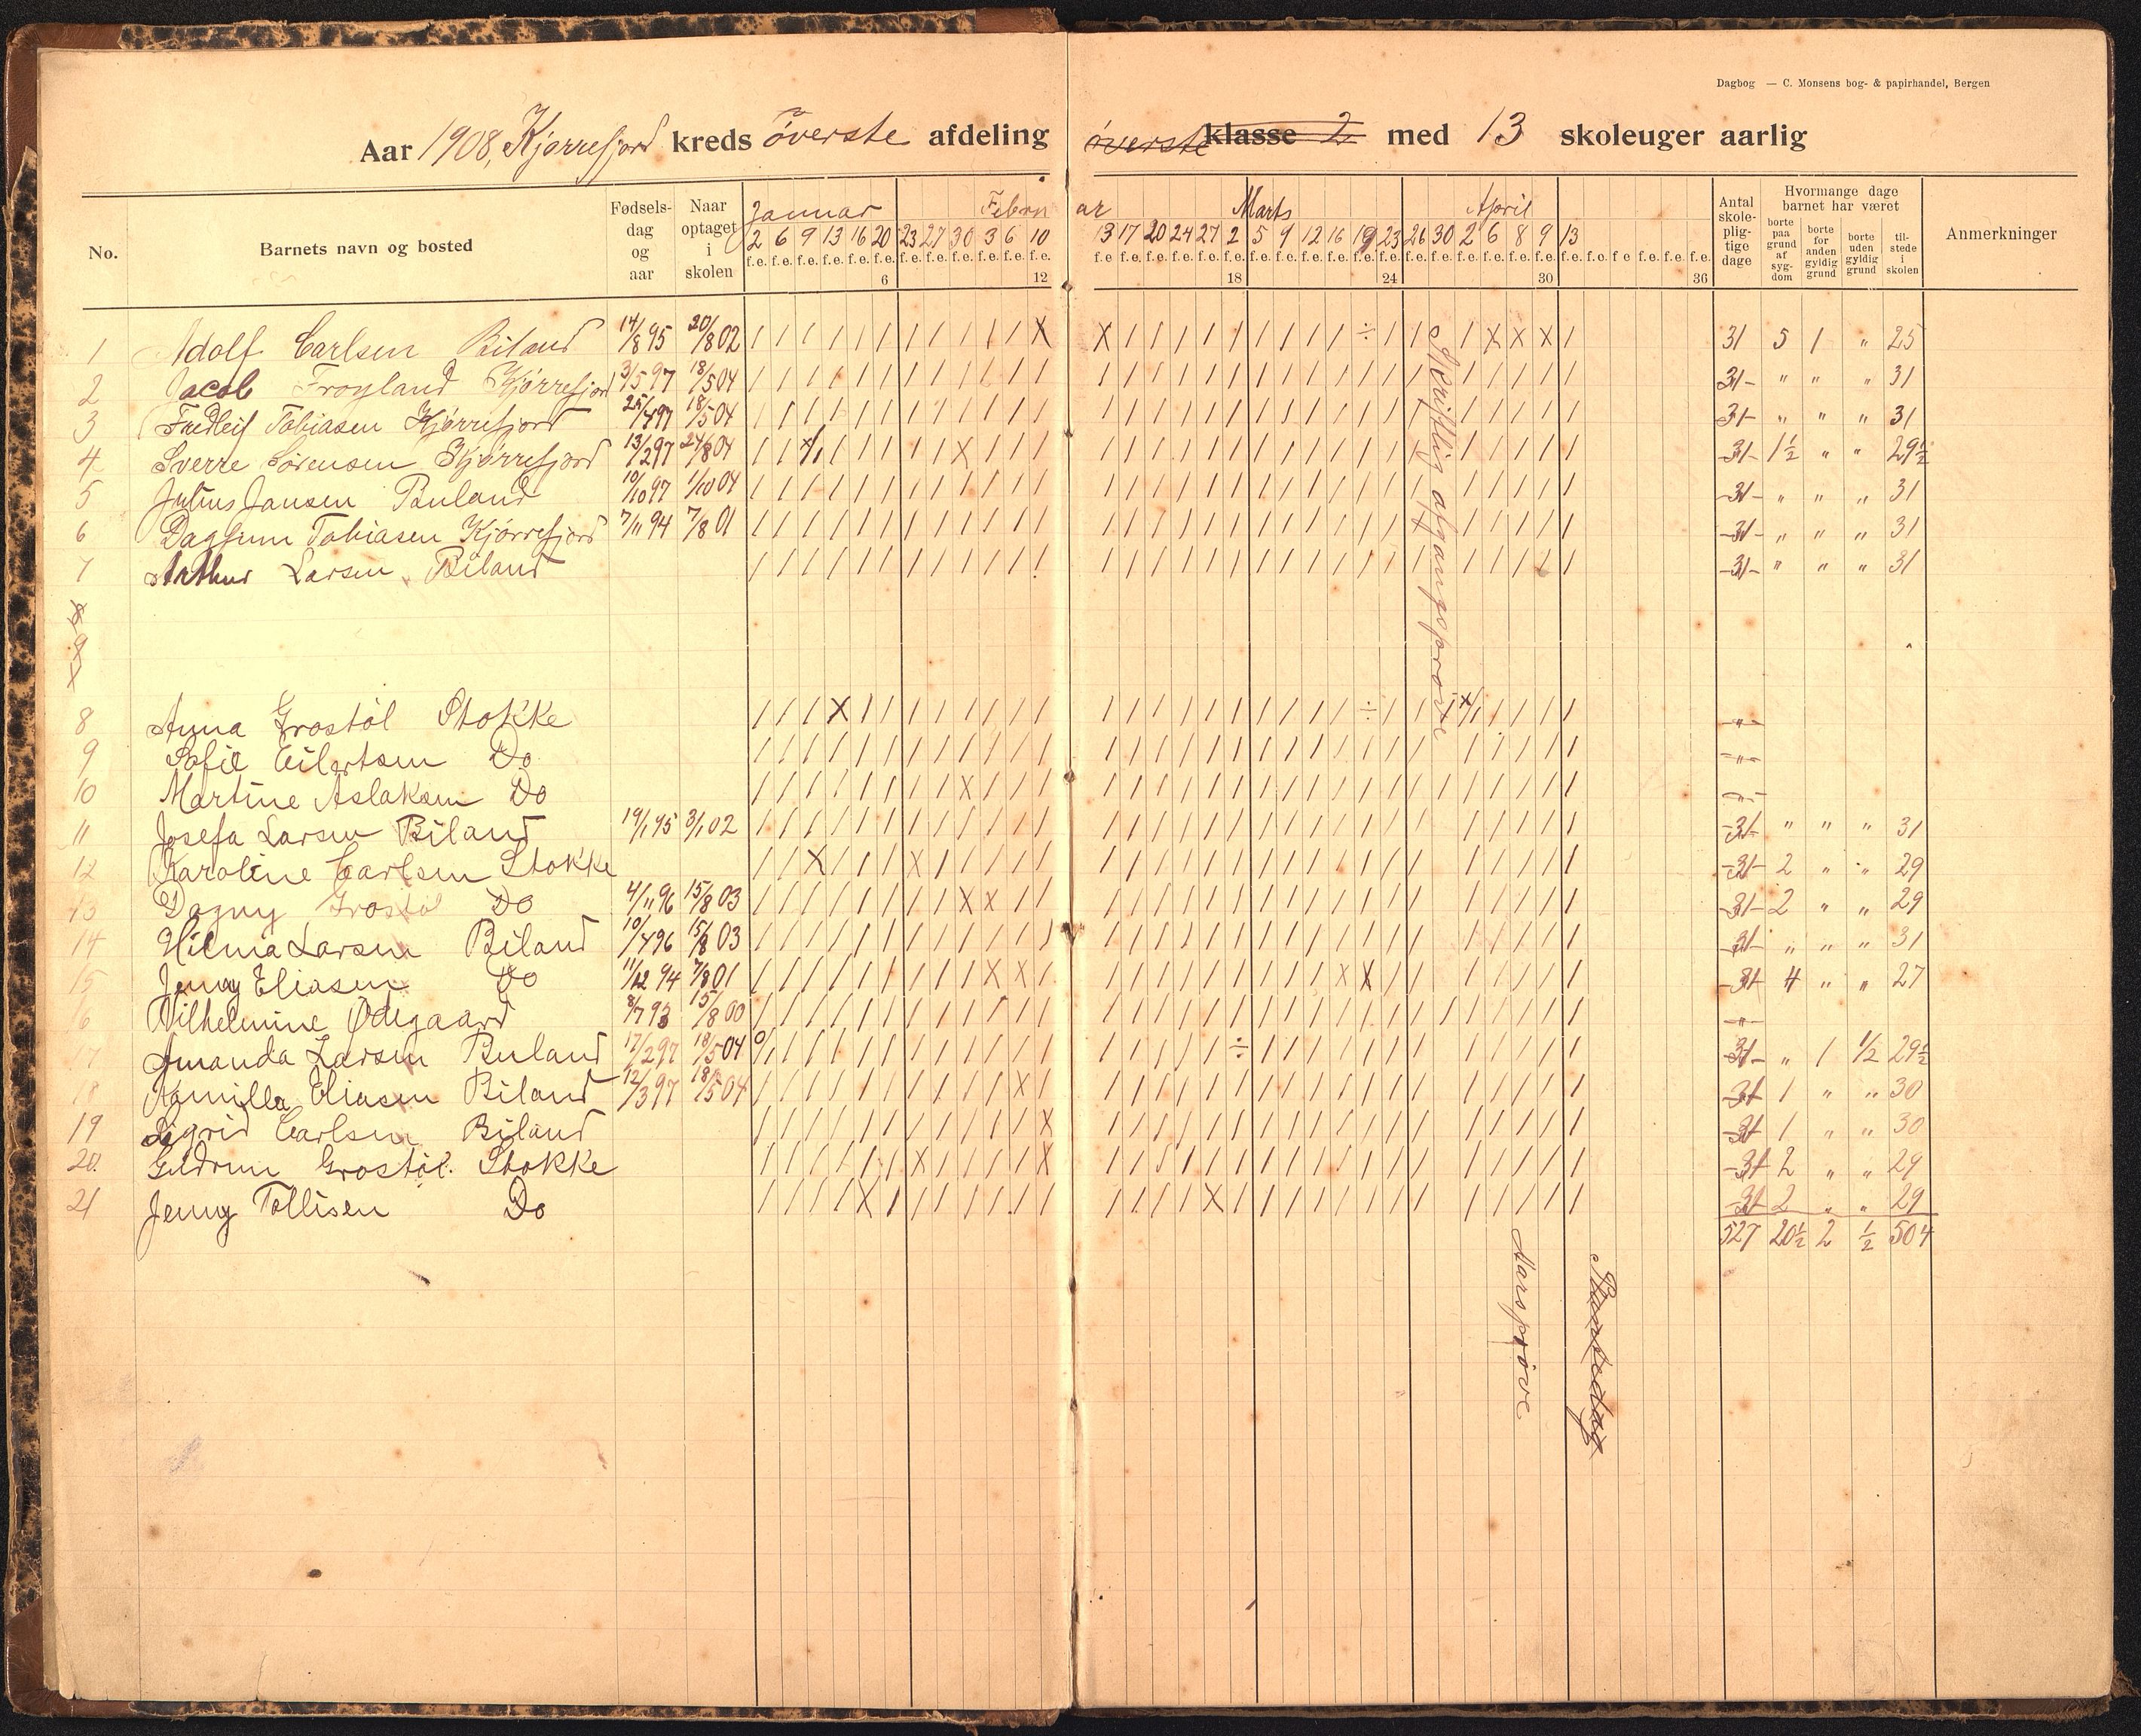 Dagbog — C. Monsens bog- & papirhandel, Bergen
Aar 1908, Kjørrefjord kreds øverste afdeling øverste klasse 2 med 13 skoleuger aarlig
No. Barnets navn og bosted Fødsels-dag og aar Naar optaget i skolen Januar Februar Marts April Antal skole-plig-tige dage Hvormange dage barnet har været borte paa grund af syg-dom borte for anden gyldig grund borte uden gyldig grund til-stede i skolen Anmerkninger
2 6 9 13 16 20 23 27 30 3 6 10 13 17 20 24 27 2 5 9 12 16 19 23 26 30 2 6 8 9 13
f.e. f.e. f.e. f.e. f.e. f.e. f.e. f.e. f.e. f.e. f.e. f.e. f.e f.e. f.e. f.e. f.e. f.e. f.e. f.e. f.e. f.e. f.e. f.e. f.e. f.e. f.e. f.e. f.e. f.e. f.e. f.e. f e f.e. f.e. f.e.
6 12 18 24 30 36
1 Adolf Carlsen Biland 14/8 95 20/8 02 / / / / / / / / / / / X X / / / / / / / / / ÷ / / / X X X / 31 5 1 " 25
2 Jacob Frøyland Kjørrefjord 3/5 97 18/5 04 31 " " " 31
3 Fredleif Tobiasen Kjørrefjord 25/4 97 18/5 04 31 " " " 31
4 Sverre Sørensen Kjørrefjord 13/2 97 24/8 04 31 1½ " " 29½
5 Julius Jansen Buland 10/10 97 1/10 04 31 " " " 31
6 Dagfinn Tobiasen Kjørrefjord 7/11 94 7/8 01 31 " " " 31
7 Arthur Larsen Biland 31 " " " 31
8
9
8 Anna Grostøl Stokke "
9 Sofie Eilertsen Do "
10 Martine Aslaksen Do "
11 Josefa Larsen Biland 19/1 95 3/1 02 31 " " " 31
12 Karoline Carlsen Stokke 31 2 " " 29
13 Dagny Grostøl Do 4/11 96 15/8 03 31 2 " " 29
14 Hilma Larsen Biland 10/4 96 15/8 03 31 " " " 31
15 Jenny Eliasen Do 11/12 94 7/8 01 31 4 " " 27
16 Vilhelmine Ødegaard 8/7 93 15/8 00 "
17 Amanda Larsen Buland 17/2 97 18/5 04 31 " 1 1/2 29½
18 Kamilla Eliasen Biland 12/3 97 18/5 04 31 1 " " 30
19 Sigrid Carlsen Biland 31 1 " " 30
20 Gudrun Grostøl. Stokke 31 2 " " 29
21 Jenny Tollisen Do 31 2 " " 29
527 20½ 2 ½ 504
Skriftlig afgangsprøve
Aarsprøve